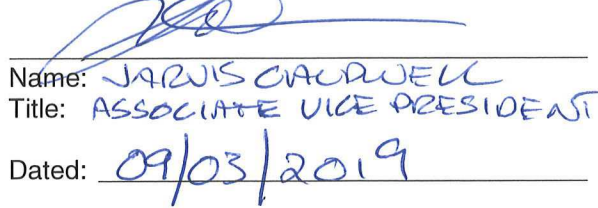 Name: JARVIS CALDWELL
Title: ASSOCIATE VICE PRESIDENT
Dated: 09/03/2019